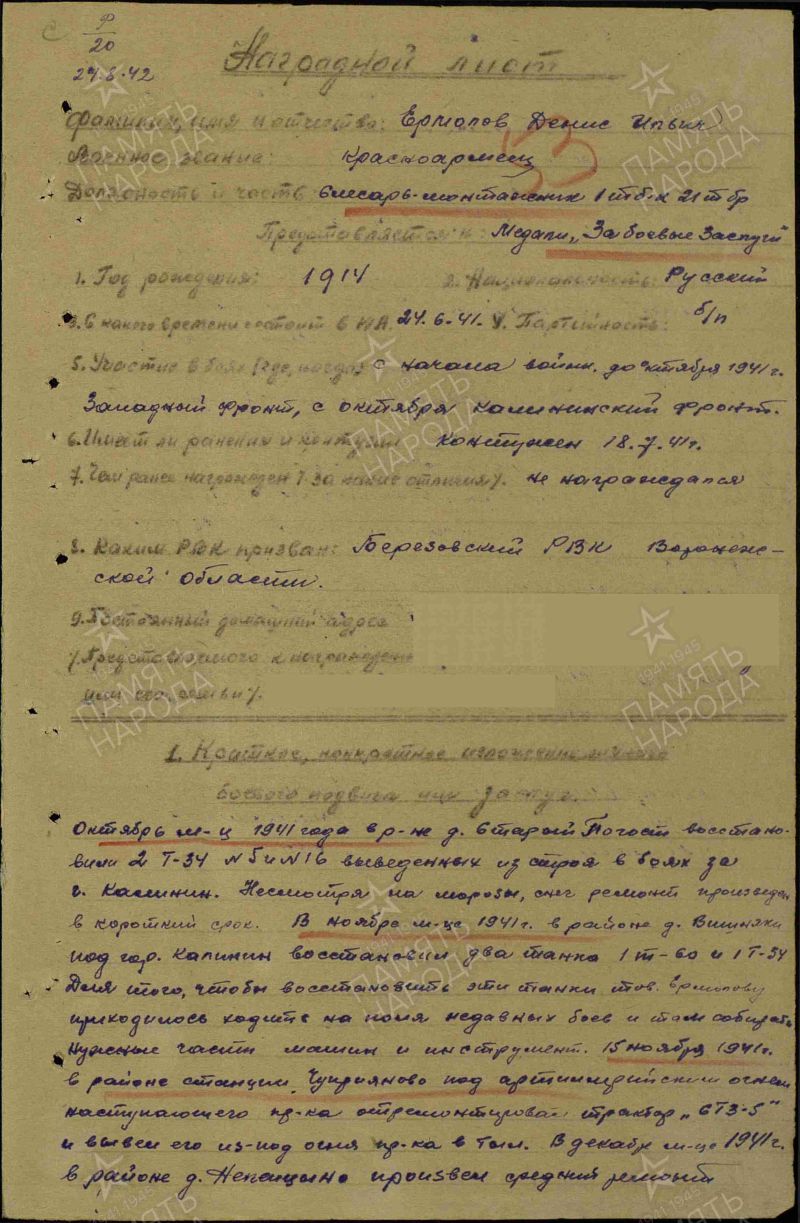 Ф
20
27.8.42
Наградной лист
Фамилия, имя и отчество: Ермолов Денис Ильич
Военное звание: Красноармеец
53
Должность и часть слесарь-монтажник 1 тб-к 21 тбр
Представляется к: Медали "За боевые Заслуги"
1. Год рождения: 1914 2. Национальность: Русский
3. С какого времени состоит в КА. 24.6.41. 4. Партийность: б/п
5. Участие в боях (где, когда) с начала войн. до октября 1941 г.
Западный фронт, с октября Калининский фронт.
6. Имеет ли ранения и контузии контужен 18.7.41г.
7. Чем ранее награжден /за какие отличия/. не награждался
8. Каким РВК призван: Березовский РВК Воронеж-
ской области.
9. Постоянный домашний адрес
/.Представляемого к награждению
или его семьи/.
1. Краткое, конкретное изложение личного
боевого подвига или заслуг.
Октябрь м-ц 1941 года в р-не д. Старый Погост восстано-
вили 2 Т-34 N5 и N16 выведенных из строя в боях за
г. Калинин. Несмотря на морозы, снег ремонт произведен
в короткий срок. В ноябре м-це 1941г. в районе д. Вишняки
под гор. Калинин восстановил два танка 1 т-60 и 1 Т-34
Для того, чтобы восстановить эти танки тов. Ермолову
приходилось ходить на поля недавных боев и там собирать
нужные части машин и инструмент. 15 ноября 1941г.
в районе станции Чуприяново под артиллерийским огнем
наступающего пр-ка отремонтировал трактор "СТЗ-5"
и вывел его из-под огня пр-ка в тыл. В декабре м-це 1941г.
в районе д. Непащино произвел средний ремонт
ПАМЯТЬ НАРОДА
1941-1945